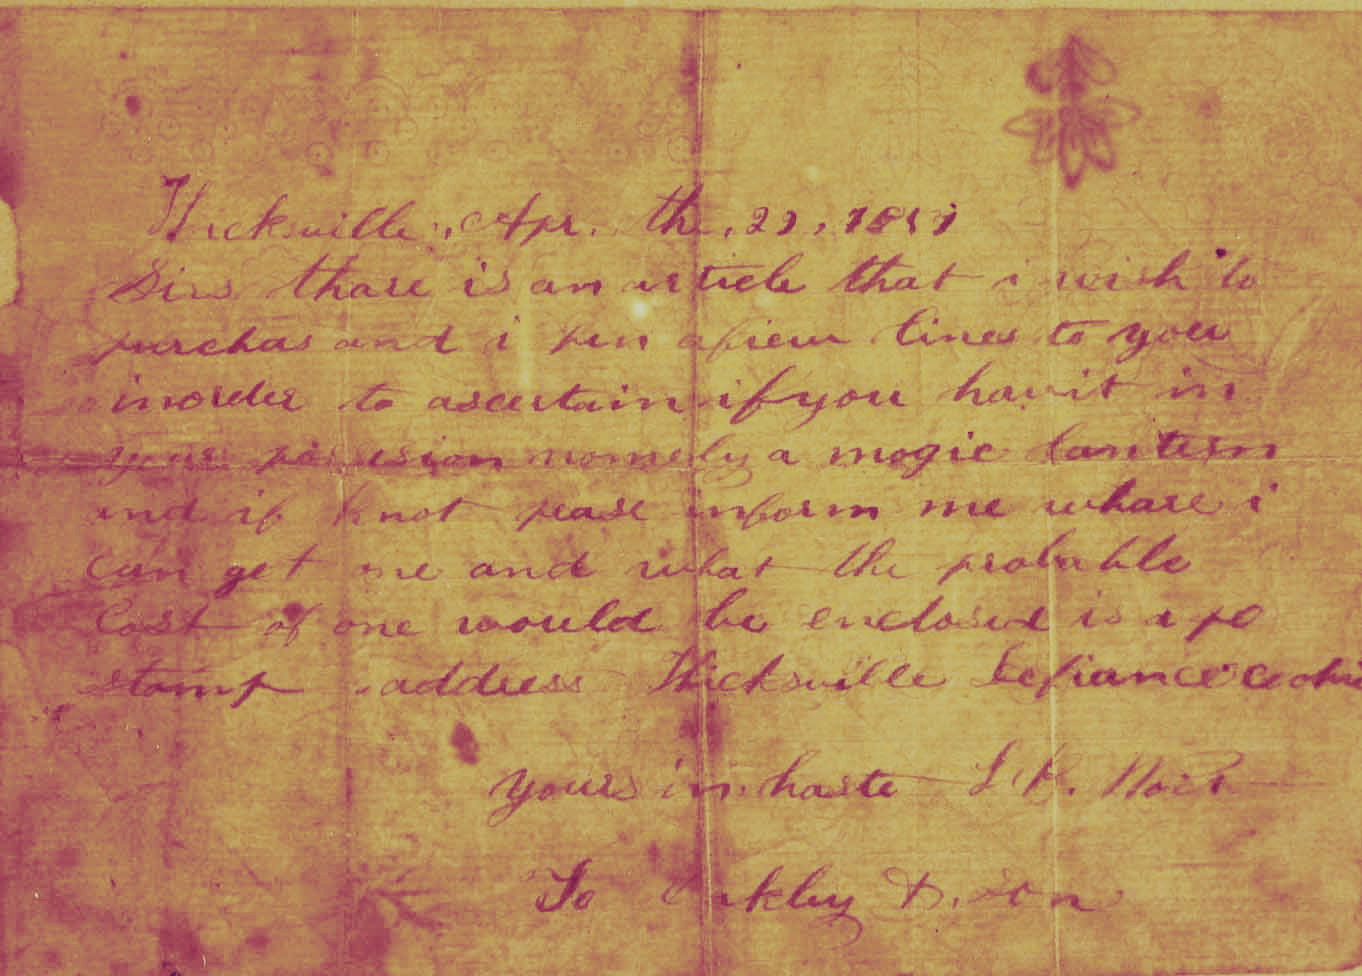 Hicksville, Apr. the, 21, 1857
Sirs thare is an article that i wish to
purchas and i pen afiew lines to you
inorder to ascertain ifyou havit in
your possesion nomely a magic lantern
and if knot pease inform me whare i
can get one and what the probable
Cost of one would be enclosed is a po
stamp address Hicksville Defiance co ohio
yours in haste
To